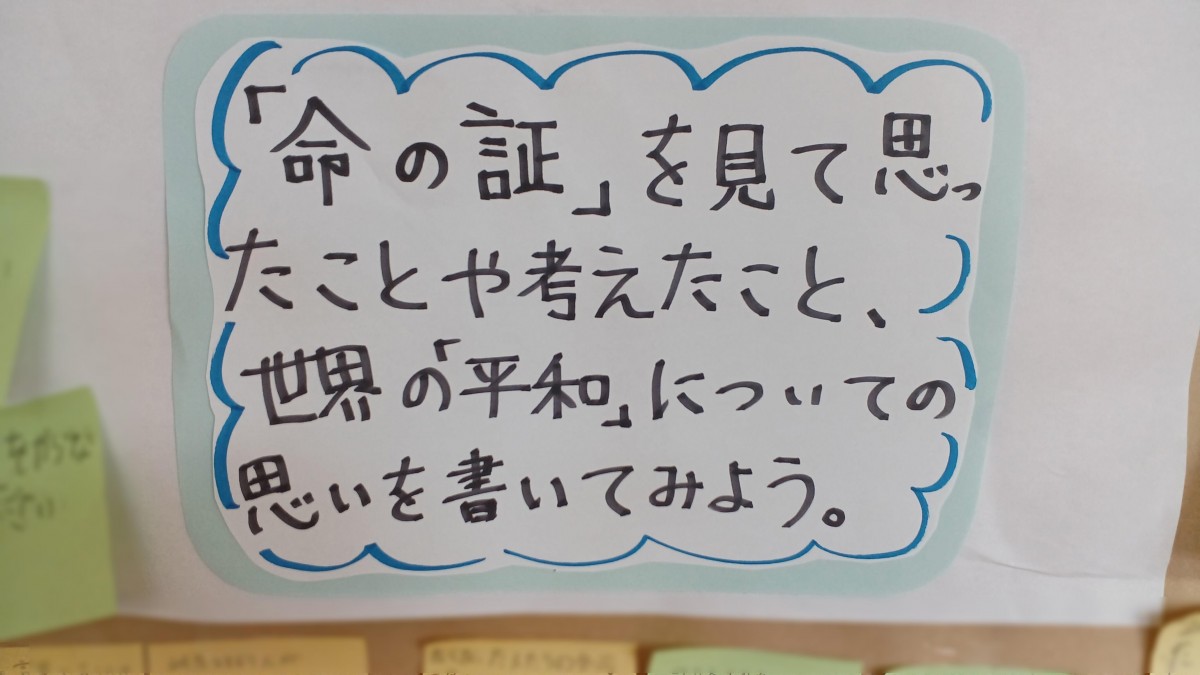 「命の証」を見て思っ
たことや考えたこと、
世界の「平和」についての
思いを書いてみよう。